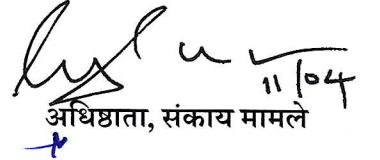 11/04
अधिष्ठाता, संकाय मामले